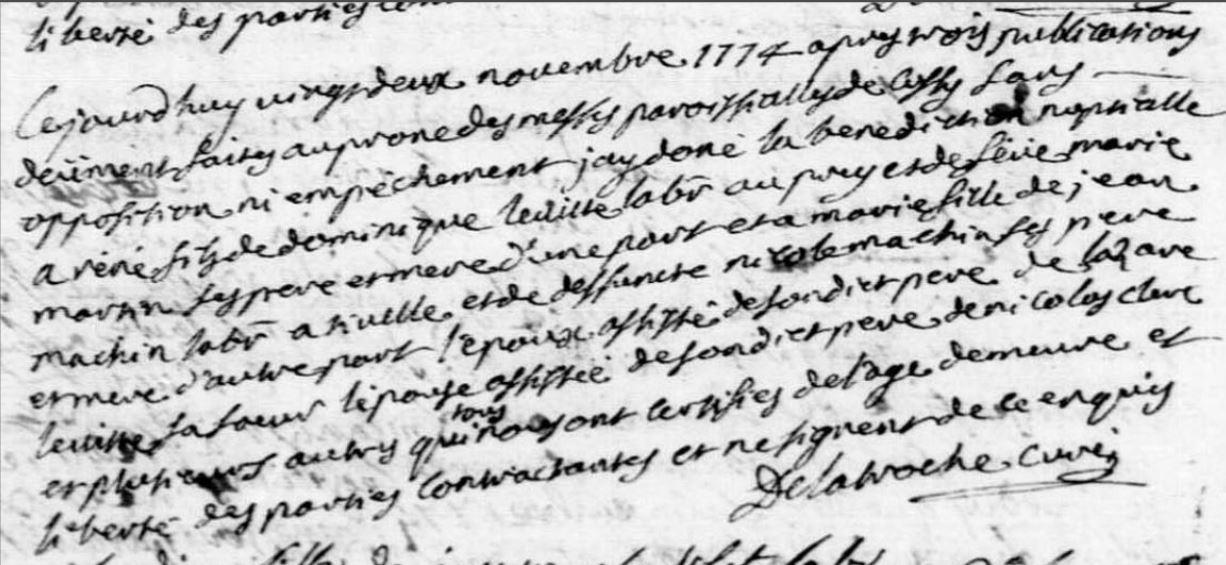 liberté des parties
Cejourdhuy vingt deux novembre 1774 apres trois publications
deüment faites au prone des messes paroissialles de sans
opposition ni empêchement jay doné la benediction nuptialle
a réné fils de dominique levitte labr au et de marie
martin ses pere et mere d'une part et a marie fille de jean
machin labr a et de deffuncte nicole machin ses pere
et mere d'autre part l'epoux assisté de son dict pere de lazare
levitte sa soeur l'épouse assistée de son dict pere de nicolas clerc
et plusieurs autres qui tous nous ont certifies de l'age demeure et
liberté des parties contractantes et ne signent de ce enquis
Delaroche curé